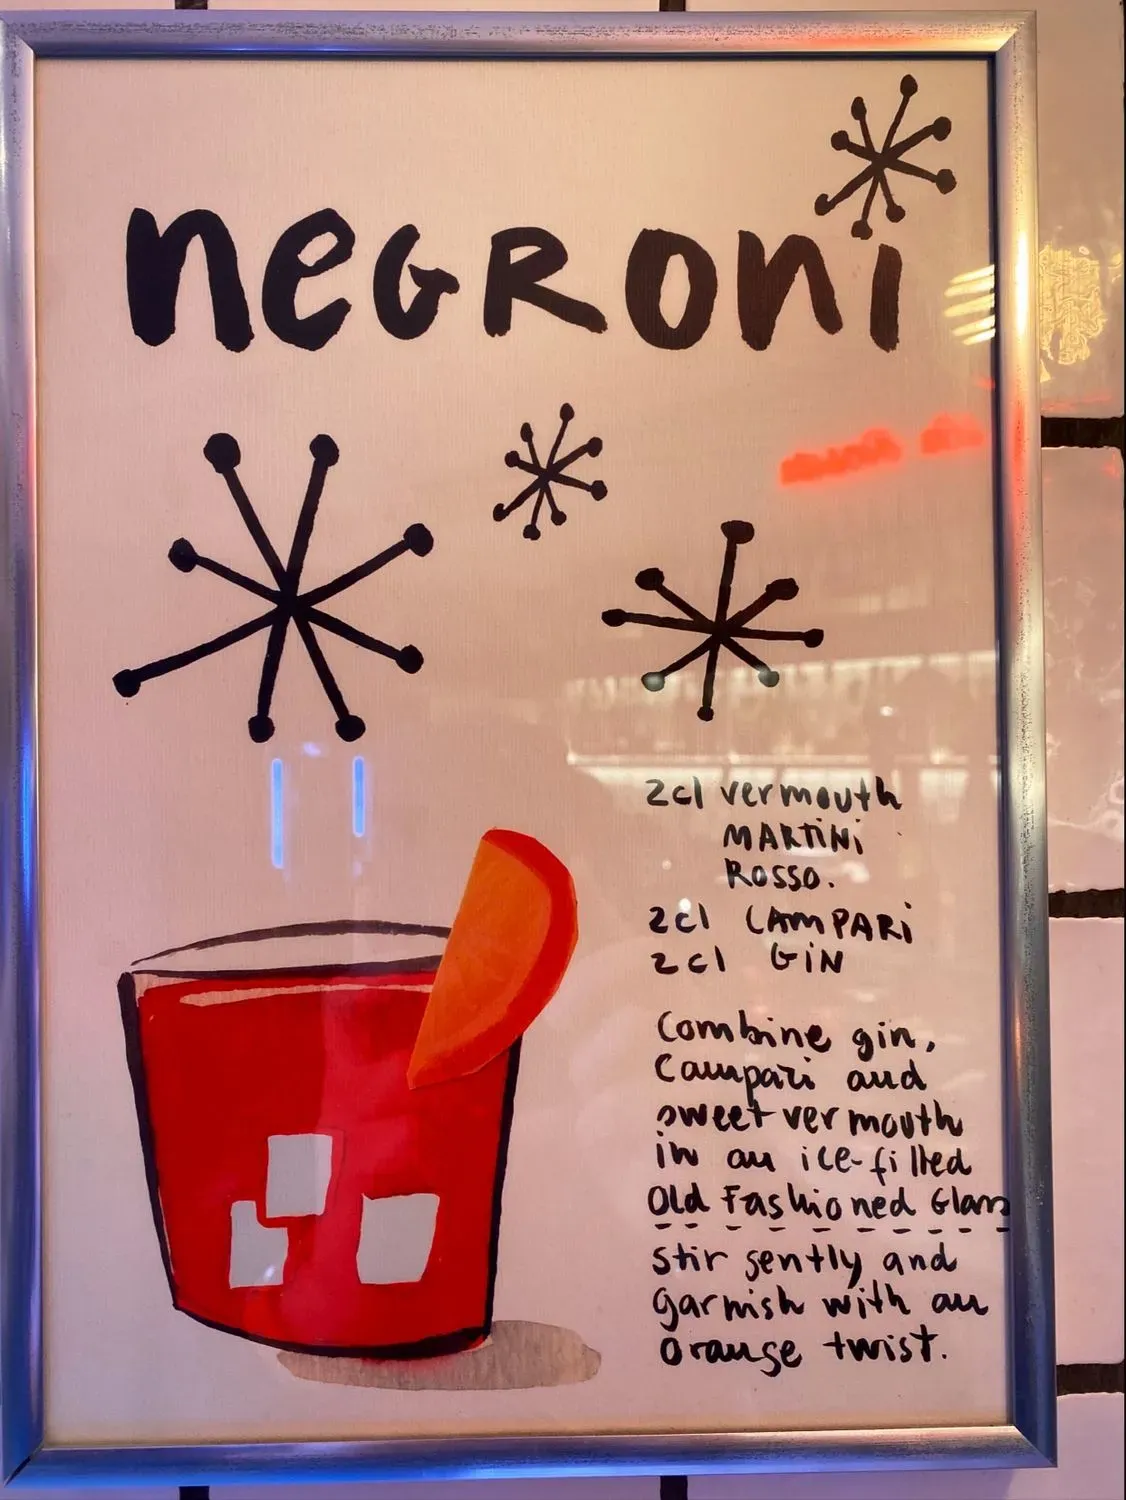 neGRoni
2cl vermouth
MARTiNi
ROSSO.
2cl CAMPARi
2cl GiN
Combine gin,
Campari and
sweet vermouth
in an ice-filled
Old Fashioned Glass
stir gently and
garnish with an
orange twist.